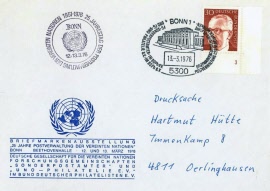 BONN
12.-13.3.76
BONN 1
13.-3.1976
5300
30
3
Drucksache
Hartmut Hütte
Immenkamp 8
4811 Oerlinghausen
BRIEFMARKENAUSSTELLUNG
"25 JAHRE POSTVERWALTUNG DER VEREINTEN NATIONEN"
BONN BEETHOVENHALLE 12. UND 13. MÄRZ 1976
DEUTSCHE GESELLSCHAFT FÜR DIE VEREINTEN NATIONEN
FORSCHUNGSGEMEINSCHAFTEN
"SONDERPOSTÄMTER" UND
"UNO-PHILATELIE E.V."
IM BUND DEUTSCHER PHILATELISTEN E.V.